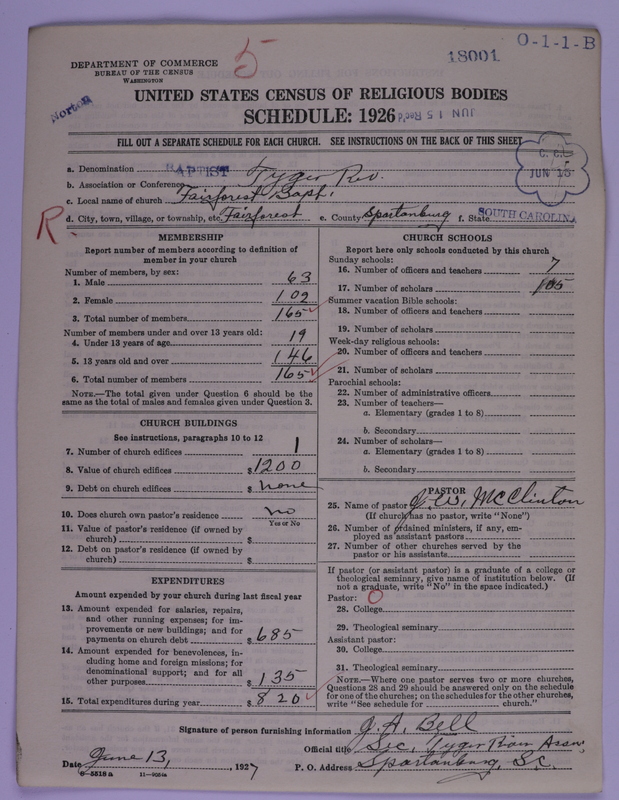 5
18001
O-1-1-B
DEPARTMENT OF COMMERCE
BUREAU OF THE CENSUS
WASHINGTON
Norton
UNITED STATES CENSUS OF RELIGIOUS BODIES
SCHEDULE: 1926
JUN 15 Rec'd
FILL OUT A SEPARATE SCHEDULE FOR EACH CHURCH. SEE INSTRUCTIONS ON THE BACK OF THIS SHEET
JUN 15
a. Denomination BAPTIST
b. Association or Conference Tyger Riv.
c. Local name of church Fairforest Bapt.
R
d. City, town, village, or township, etc. Fairforest e. County Spartanburg f. State SOUTH CAROLINA
MEMBERSHIP
Report number of members according to definition of
member in your church
Number of members, by sex:
1. Male 63
2. Female 102
3. Total number of members 165
Number of members under and over 13 years old:
4. Under 13 years of age 19
5. 13 years old and over 146
6. Total number of members 165
NOTE.—The total given under Question 6 should be the
same as the total of males and females given under Question 3.
CHURCH BUILDINGS
See instructions, paragraphs 10 to 12
7. Number of church edifices 1
8. Value of church edifices $ 1200
9. Debt on church edifices $ none
10. Does church own pastor's residence no
Yes or No
11. Value of pastor's residence (if owned by
church) $
12. Debt on pastor's residence (if owned by
church) $
EXPENDITURES
Amount expended by your church during last fiscal year
13. Amount expended for salaries, repairs,
and other running expenses; for im-
provements or new buildings; and for
payments on church debt $ 685
14. Amount expended for benevolences, in-
cluding home and foreign missions; for
denominational support; and for all
other purposes $ 135
15. Total expenditures during year $ 820
CHURCH SCHOOLS
Report here only schools conducted by this church
Sunday schools:
16. Number of officers and teachers 7
17. Number of scholars 105
Summer vacation Bible schools:
18. Number of officers and teachers
19. Number of scholars
Week-day religious schools:
20. Number of officers and teachers
21. Number of scholars
Parochial schools:
22. Number of administrative officers
23. Number of teachers—
a. Elementary (grades 1 to 8)
b. Secondary
24. Number of scholars—
a. Elementary (grades 1 to 8)
b. Secondary
PASTOR
25. Name of pastor J. W. McClinton
(If church has no pastor, write "None")
26. Number of ordained ministers, if any, em-
ployed as assistant pastors
27. Number of other churches served by the
pastor or his assistants
If pastor (or assistant pastor) is a graduate of a college or
theological seminary, give name of institution below. (If
not a graduate, write "No" in the space indicated.)
Pastor: O
28. College
29. Theological seminary
Assistant pastor:
30. College
31. Theological seminary
NOTE.—Where one pastor serves two or more churches,
Questions 28 and 29 should be answered only on the schedule
for one of the churches; on the schedules for the other churches,
write "See schedule for church."
Signature of person furnishing information J. A. Bell
Official title Sec, Tyger River Assn,
Date June 13, 1927 P. O. Address Spartanburg, S.C.
8-5518a 11-9054a